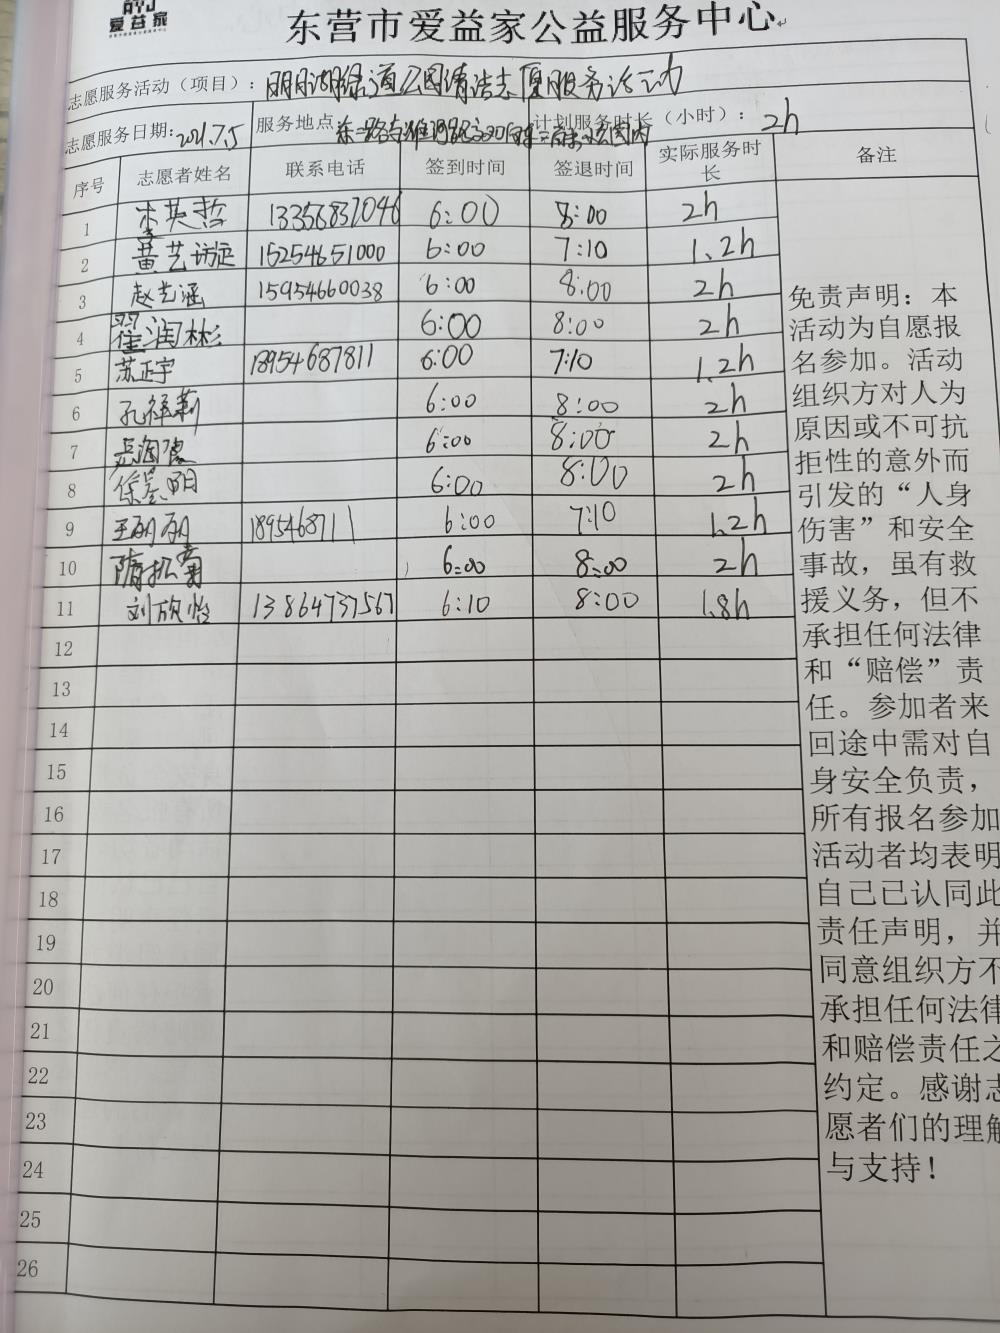 爱益家
东营市爱益家公益服务中心
志愿服务活动（项目）：明月湖绿道公园清洁志愿服务活动
志愿服务日期：2021.7.5 服务地点： 计划服务时长（小时）：2h
序号 志愿者姓名 联系电话 签到时间 签退时间 实际服务时长 备注
1 李英哲 13356837046 6:00 8:00 2h
2 黄艺 15254651000 6:00 7:10 1.2h
3 赵艺涵 15954660038 6:00 8:00 2h
4 翟润彬 6:00 8:00 2h
5 苏正宇 18954687811 6:00 7:10 1.2h
6 孔祥莉 6:00 8:00 2h
7 6:00 8:00 2h
8 徐景阳 6:00 8:00 2h
9 王丽丽 1895468711 6:00 7:10 1.2h
10 隋振菊 6:00 8:00 2h
11 刘欣怡 13864737567 6:10 8:00 1.8h
12
13
14
15
16
17
18
19
20
21
22
23
24
25
26
免责声明：本
活动为自愿报
名参加。活动
组织方对人为
原因或不可抗
拒性的意外而
引发的“人身
伤害”和安全
事故，虽有救
援义务，但不
承担任何法律
和“赔偿”责
任。参加者来
回途中需对自
身安全负责，
所有报名参加
活动者均表明
自己已认同此
责任声明，并
同意组织方不
承担任何法律
和赔偿责任之
约定。感谢志
愿者们的理解
与支持！